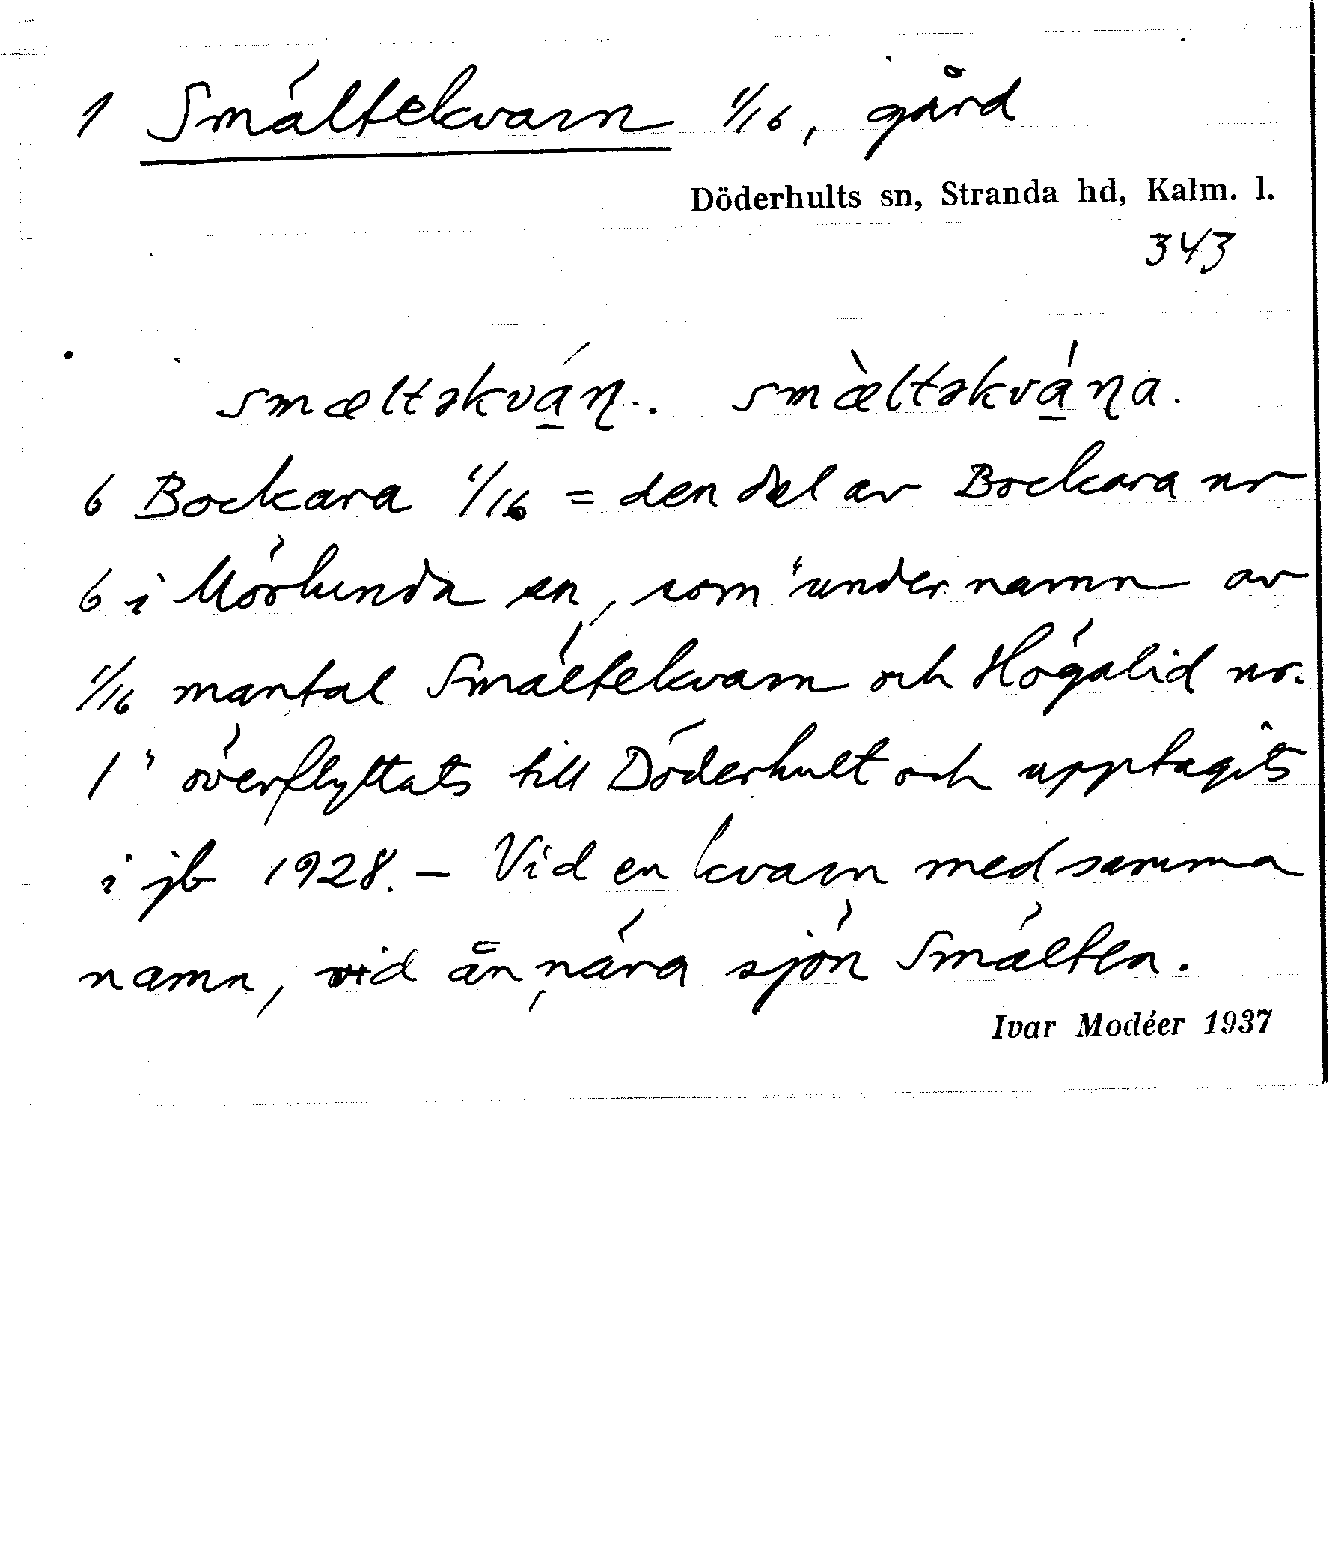 1 Smältekvarn 1/16, gård
Döderhults sn, Stranda hd, Kalm. l.
343
smæltəkvá̱ɳ. smæ̀ltəkvá̱ɳa.
6 Bockara 1/16 = den del av Bockara nr
6 i Mörlunda sn, som "under namn av
1/16 mantal Smältekvarn och Högalid nr.
1" överflyttats till Döderhult och upptagits
i jb 1928. – Vid en kvarn med samma
namn, vid ån, nära sjön Smälten.
Ivar Modéer 1937